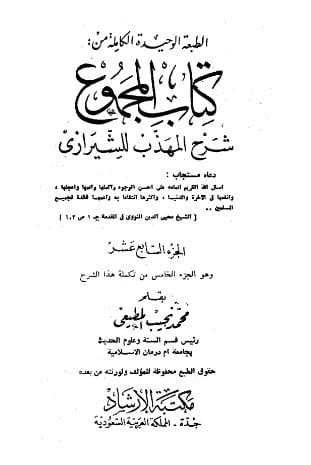 الطبعة الوحيدة الكاملة من :
كتاب المجموع
شرح المهذب للشيرازى
دعاء مستجاب :
اسال الله الكريم اتمامه على احسن الوجوه واكملها واتمها واعجلها ،
وانفعها فى الآخرة والدنيا ، واكثرها انتفاعا به واعمها فائدة لجميع
المسلمين ..
[ الشيخ محيى الدين النووى فى المقدمة جـ ١ ص ١٠٣ ]
الجزء السابع عشر
وهو الجزء الخامس من تكملة هذا الشرح
بقلم
محمد نجيب المطيعى
رئيس قسم السنة وعلوم الحديث
بجامعة ام درمان الاسلامية
حقوق الطبع محفوظة للمؤلف ولورثته من بعده
مكتبة الإرشاد
جدة - المملكة العربية السعودية